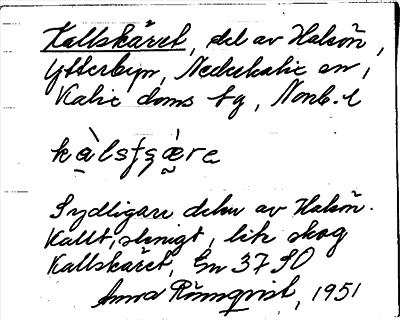 Kallskäret, del av Halsön,
Ytterbyn, Nederkalix sn,
Kalix doms tg, Nonb. l
kàlsʃɛ̀re
Sydligare delen av Halsön.
Kallt, stenigt, lite skog
Kallskäret, En 37 SO
Anna Rönnqvist, 1951